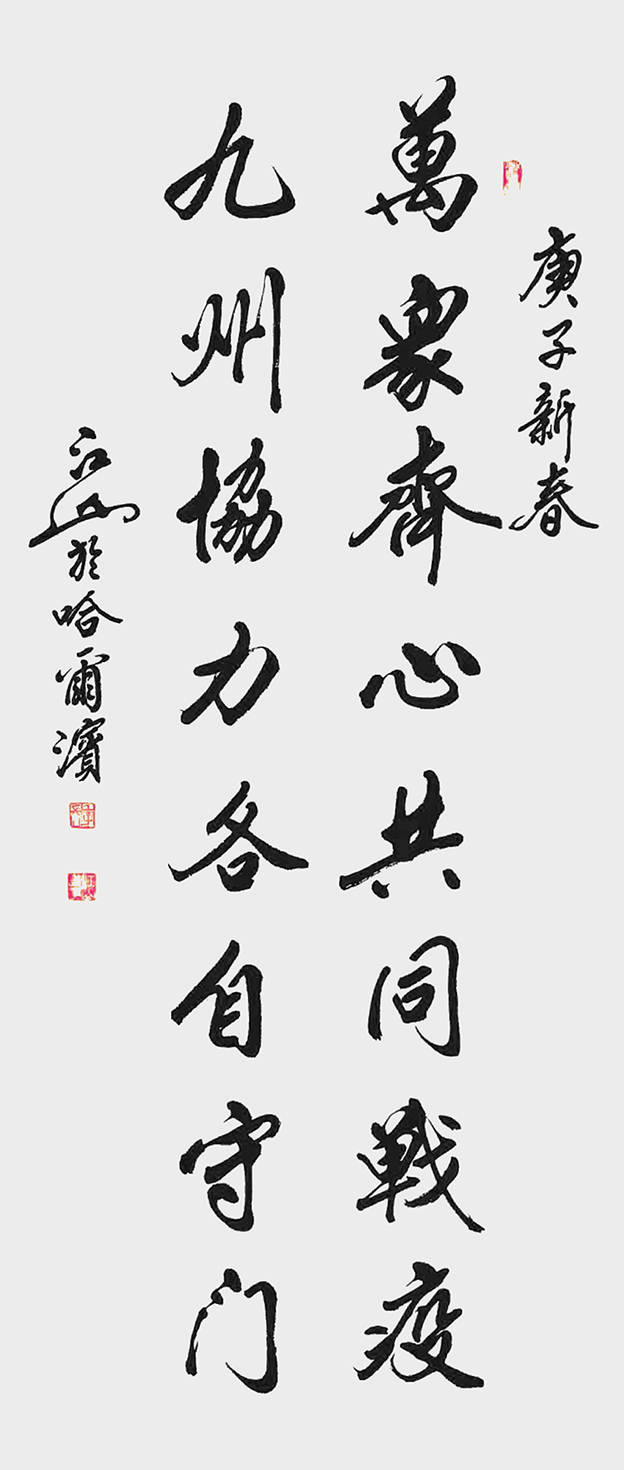 庚子新春
萬眾齊心共同戰疫
九州協力各自守门
江山於哈爾濱